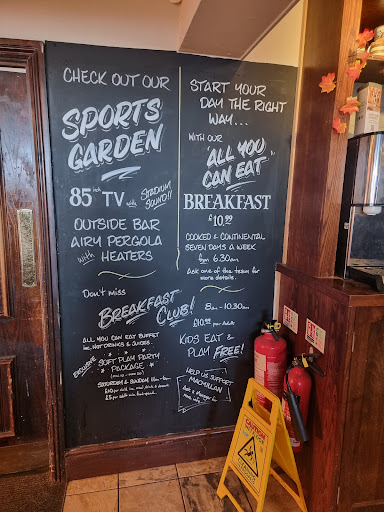 CHECK OUT OUR
SPORTS
GARDEN
85 inch TV with STADIUM SOUND!!
OUTSIDE BAR
AIRY PERGOLA
with HEATERS
START YOUR
DAY THE RIGHT
WAY...
WITH OUR
"ALL YOU
CAN EAT"
BREAKFAST
£10.99
COOKED & CONTINENTAL
SEVEN DAYS A WEEK
from 6.30am
Ask one of the team for
more details.
Don't miss
Breakfast
Club!
ALL YOU CAN EAT BUFFET
inc HOT DRINKS & JUICES.
EXCLUSIVE
SOFT PLAY PARTY
PACKAGE
SATURDAY & SUNDAY
8am - 10.30am
£10.99 per Adult
KIDS EAT &
PLAY FREE!
HELP US SUPPORT
MACMILLAN
Ask a Manager for
more info.
CAUTION